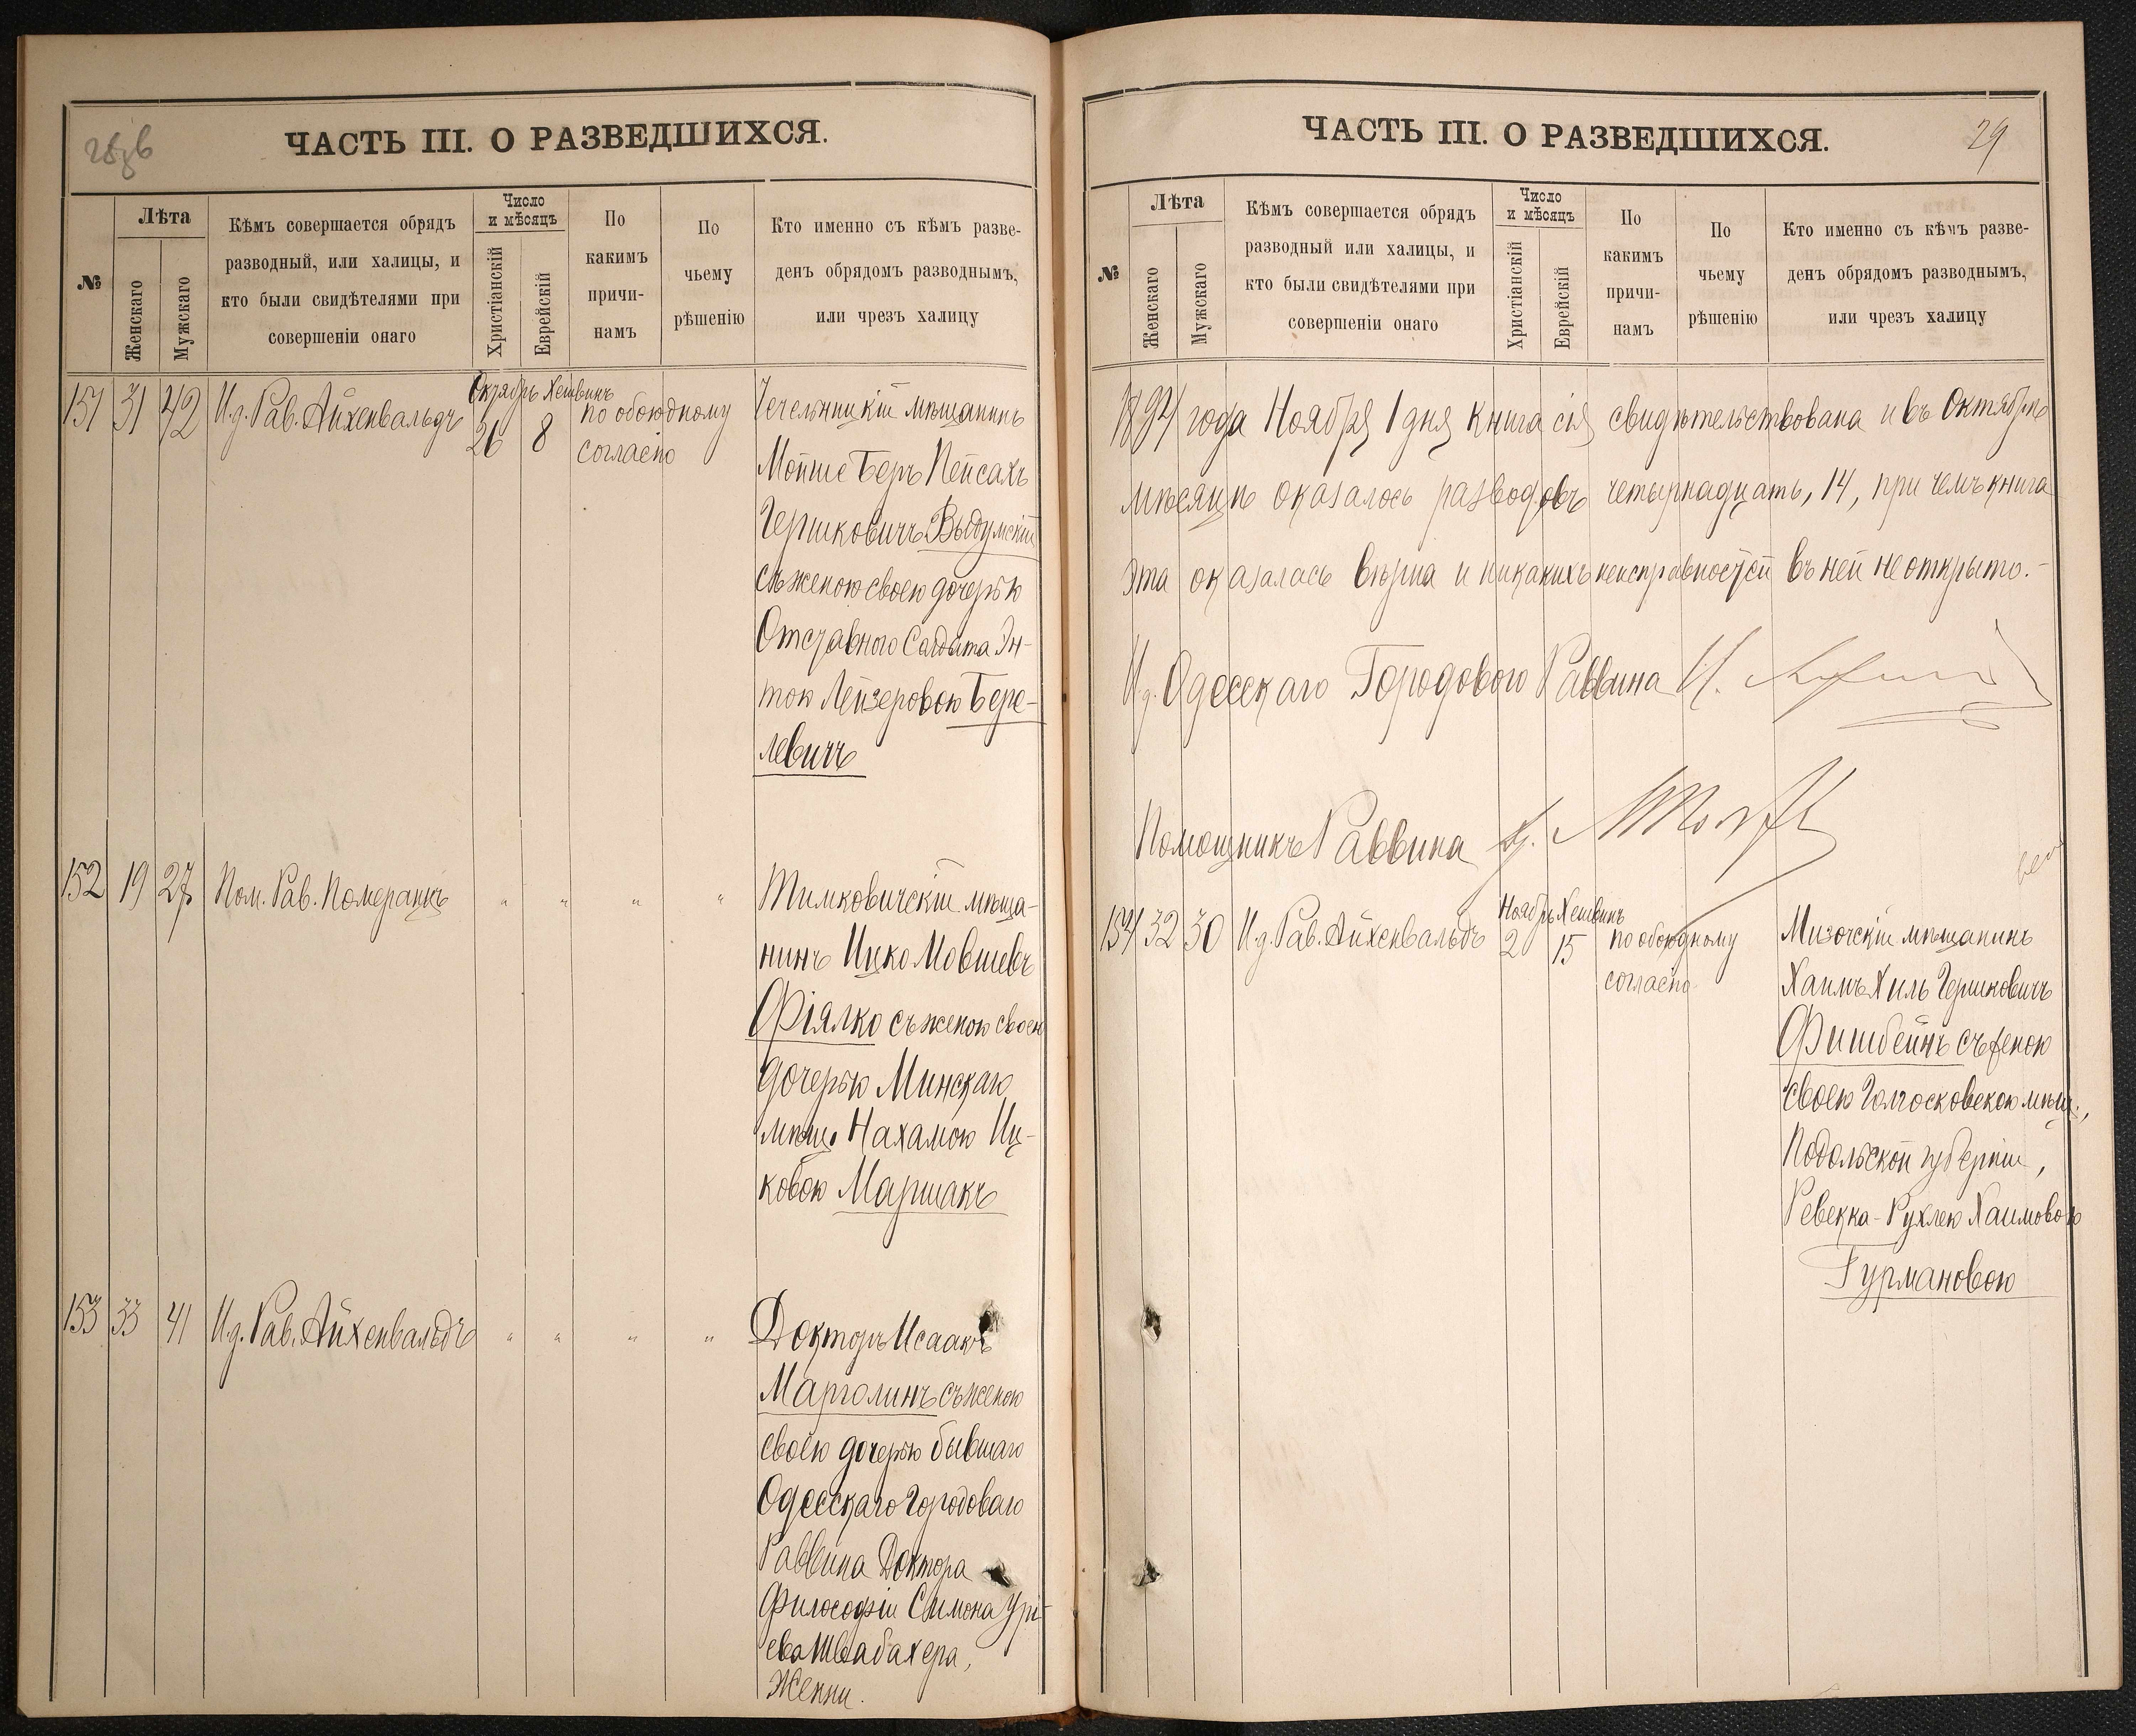 ЧАСТЬ III. О РАЗВЕДШИХСЯ.
№
Лѣта
Женскаго
Мужскаго
Кѣмъ совершается обрядъ
разводный, или халицы, и
кто были свидѣтелями при
совершеніи онаго
Число
и мѣсяцъ
Христіанскій
Еврейскій
По
какимъ
причи-
намъ
По
чьему
рѣшенію
Кто именно съ кѣмъ разве-
денъ обрядомъ разводнымъ,
или чрезъ халицу
151 31 42 И.д. Рав. Айхенвальдъ
Октябрь Хешвинъ
26 8
по обоюдному
согласію
Чечельницкій мѣщанинъ
Мойше Беръ Пейсахъ
Гершковичъ Выдумскій
съ женою своею дочерью
Отставного Солдата Эн-
тою Лейзеровою Бере-
левичъ
152 19 27 Пом. Рав. Померанцъ " " " "
Тимковичскій мѣща-
нинъ Ицко Мовшевъ
Фіялко съ женою своею
дочерью Минскаго
мѣщ. Нахамою Иц-
ковою Маршакъ
153 33 41 И.д. Рав. Айхенвальдъ " " " "
Докторъ Исаакъ
Марголинъ съ женою
своею дочерью бывшаго
Одесскаго Городоваго
Раввина Доктора
Философіи Симона Урі-
ева Швабахера,
Женни.
ЧАСТЬ III. О РАЗВЕДШИХСЯ.
29
№
Лѣта
Женскаго
Мужскаго
Кѣмъ совершается обрядъ
разводный или халицы, и
кто были свидѣтелями при
совершеніи онаго
Число
и мѣсяцъ
Христіанскій
Еврейскій
По
какимъ
причи-
намъ
По
чьему
рѣшенію
Кто именно съ кѣмъ разве-
денъ обрядомъ разводнымъ,
или чрезъ халицу
1894 года Ноября 1 дня книга сія свидѣтельствована и въ Октябрѣ
мѣсяцѣ оказалось разводовъ четырнадцать, 14, при чемъ книга
эта оказалась вѣрна и никакихъ неисправностей въ ней не открыто.-
И.д. Одесскаго Городового Раввина
Помощникъ Раввина
154 32 30 И.д. Рав. Айхенвальдъ
Ноябрь Хешвинъ
2 15
по обоюдному
согласію
Мизочскій мѣщанинъ
Хаимъ Хиль Гершковичъ
Фишбейнъ съ женою
своею Голосковскою мѣщ.,
Подольской губерніи,
Ревекка-Рухлею Хаимовою
Гурмановою